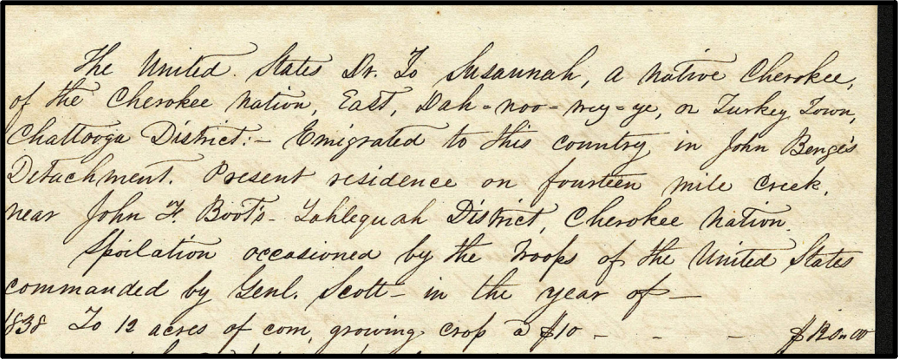 The United States Dr. To Susannah, a native Cherokee,
of the Cherokee Nation, East, Dah-noo-wey-ye, or Turkey Town,
Chattooga District:- Emigrated to this country in John Benge's
Detachment. Present residence on fourteen mile creek,
near John F. Boot's- Tahlequah District, Cherokee Nation.
Spoilation occasioned by the troops of the United States
commanded by Genl. Scott- in the year of —
1838 To 12 acres of corn, growing crop a $10 - - - - $120.00